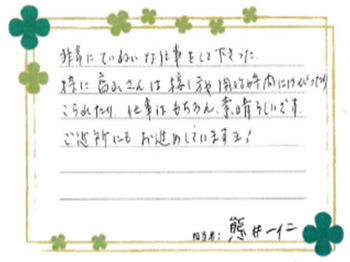 非常にていねいな仕事をして下さった。
特に高山さんは接し方
こられたり、仕事はもちろん、素晴らしいです。
ご近所にもお進めしていますヨ!
担当者: 熊井一仁